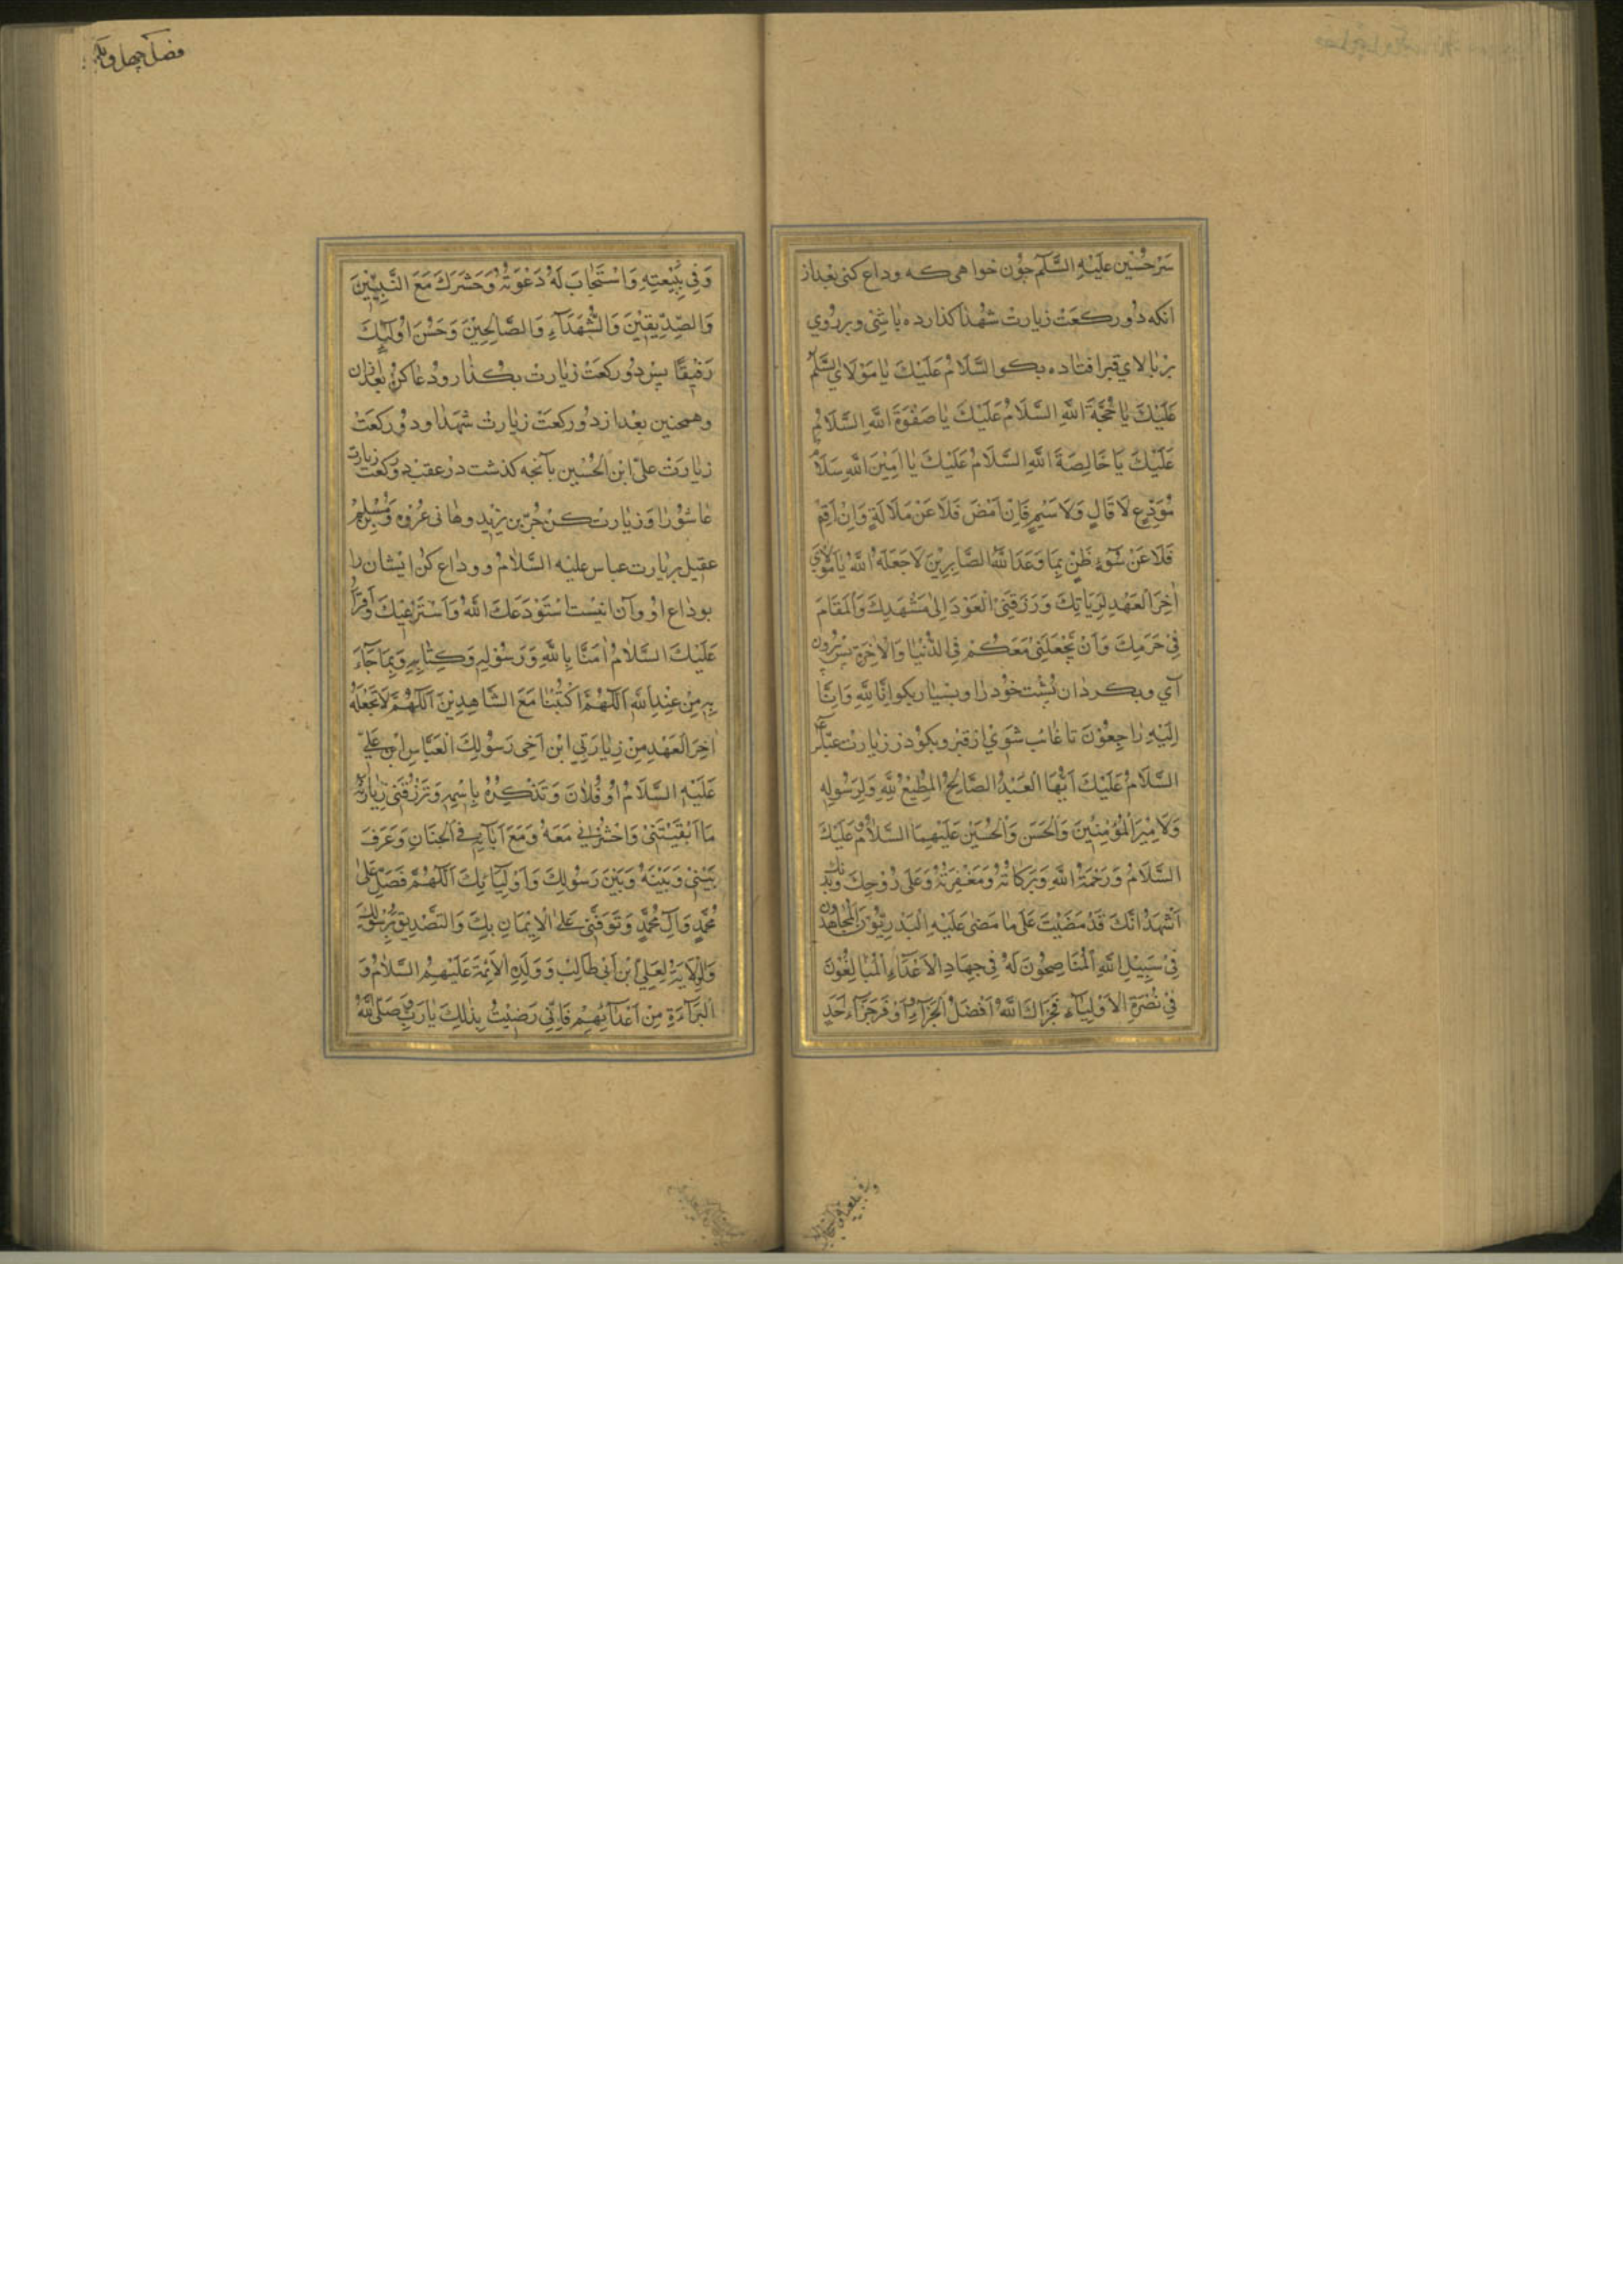 سَرِ حُسَيْن عَلَيْهِ السَّلَم چُون خواهى كه وداع كنى بعد از
انكه دُو ركعَتْ زيارتْ شهُدا كذارده باشِى و بر رُوي
بر بالاي قبر افتاده بكو السَّلَامُ عَلَيْكَ يَا مَوْلَايَ السَّلَمُ
عَلَيْكَ يَا حُجَّةَ اللَّهِ السَّلَامُ عَلَيْكَ يَا صَفْوَةَ اللَّهِ السَّلَامُ
عَلَيْكَ يَا خَالِصَةَ اللَّهِ السَّلَامُ عَلَيْكَ يَا اَمِيْنَ اللَّهِ سَلَامَ
مُوَدِّعٍ لَا قَالٍ وَلَا سَئِمٍ فَاِنْ اَمْضِ فَلَا عَنْ مَلَالَةٍ وَاِنْ اُقِمْ
فَلَا عَنْ سُوْءِ ظَنٍّ بِمَا وَعَدَ اللَّهُ الصَّابِرِيْنَ لَا جَعَلَهُ اللَّهُ يَا مَوْلَايَ
اٰخِرَ الْعَهْدِ لِزِيَارَتِكَ وَرَزَقَنِيَ الْعَوْدَ اِلىٰ مَشْهَدِكَ وَالْمَقَامَ
فِيْ حَرَمِكَ وَاَنْ يَجْعَلَنِيْ مَعَكُمْ فِي الدُّنْيَا وَالْاٰخِرَةِ پس بيرون
آي و بكردان پُشْت خوُد را و بسْيار بكو اِنَّا لِلَّهِ وَاِنَّا
اِلَيْهِ رَاجِعُوْنَ تا غائب شوي از قبر و بكو در زيارت عبّاس ع
السَّلَامُ عَلَيْكَ اَيُّهَا الْعَبْدُ الصَّالِحُ الْمُطِيْعُ لِلَّهِ وَلِرَسُوْلِهِ
وَلِاَمِيْرِ الْمُؤْمِنِيْنَ وَالْحَسَنِ وَالْحُسَيْنِ عَلَيْهِمَا السَّلَامُ عَلَيْكَ
السَّلَامُ وَرَحْمَةُ اللَّهِ وَبَرَكَاتُهُ وَمَغْفِرَتُهُ وَعَلَى رُوْحِكَ وَبَدَنِكَ
اَشْهَدُ اَنَّكَ قَدْ مَضَيْتَ عَلَى مَا مَضىٰ عَلَيْهِ الْبَدْرِيُّوْنَ الْمُجَاهِدُونَ
فِيْ سَبِيْلِ اللَّهِ الْمُنَاصِحُوْنَ لَهُ فِيْ جِهَادِ الْاَعْدَاءِ الْمُبَالِغُوْنَ
فِيْ نُصْرَةِ الْاَوْلِيَاءِ فَجَزَاكَ اللَّهُ اَفْضَلَ الْجَزَاءِ وَاَوْفَرَ جَزَاءِ اَحَدٍ
وَفِيْ بِبَيْعَتِهِ وَاسْتَجَابَ لَهُ دَعْوَتَهُ وَحَشَرَكَ مَعَ النَّبِيِّيْنَ
وَالصِّدِّيْقِيْنَ وَالشُّهَدَاءِ وَالصَّالِحِيْنَ وَحَسُنَ اُولَئِكَ
رَفِيْقًا پسْ دُو ركعَتْ زيارتْ بكذار و دُعا كن بعد ازان
وهمچنين بعْد از دُو ركعَتْ زيارتْ شهَدا و دوُ ركعَتْ
زيارَتْ علىّ ابن الحُسَين بآنچه كذشت در عقب دو ركعت زيارت
عاشُورَا و زيارت كنْ حُرّ بن يزيد و هانى عُرْوَه و مُسْلِم بنْ
عقيل بزيارت عباس عليه السَّلامُ و وداع كن ايشان را
بوداع اوُ و آن اينست اَسْتَوْدِعُكَ اللَّهَ وَاَسْتَرْعِيْكَ وَاَقْرَأُ
عَلَيْكَ السَّلَامُ اٰمَنَّا بِاللَّهِ وَرَسُوْلِهِ وَكِتَابِهِ وَبِمَا جَاءَ
بِهِ مِنْ عِنْدِ اللَّهِ اَللَّهُمَّ اكْتُبْنَا مَعَ الشَّاهِدِيْنَ اَللَّهُمَّ لَا تَجْعَلْهُ
اٰخِرَ الْعَهْدِ مِنْ زِيَارَتِيْ ابْنَ اَخِيْ رَسُوْلِكَ الْعَبَّاسِ ابْنِ عَلِيٍّ
عَلَيْهِ السَّلَامُ اَوْ فُلَانَ وَتَذْكُرُهُ بِاسْمِهِ وَتَرْزُقَنِيْ زِيَارَتَهُ
مَا اَبْقَيْتَنِيْ وَاحْشُرْنِيْ مَعَهُ وَمَعَ اٰبَائِهِ فِي الْجِنَانِ وَعَرِّفْ
بَيْنِيْ وَبَيْنَهُ وَبَيْنَ رَسُوْلِكَ وَاَوْلِيَائِكَ اَللَّهُمَّ فَصَلِّ عَلىٰ
مُحَمَّدٍ وَآلِ مُحَمَّدٍ وَتَوَفَّنِيْ عَلىٰ الْاِيْمَانِ بِكَ وَالتَّصْدِيْقِ بِرَسُوْلِكَ
وَالْوِلَايَةِ لِعَلِيِّ ابْنِ اَبِيْ طَالِبٍ وَوُلْدِهِ الْاَئِمَّةِ عَلَيْهِمُ السَّلَامُ وَ
الْبَرَاءَةِ مِنْ اَعْدَائِهِمْ فَاِنِّيْ رَضِيْتُ بِذٰلِكَ يَا رَبِّ وَصَلَّى اللَّهُ